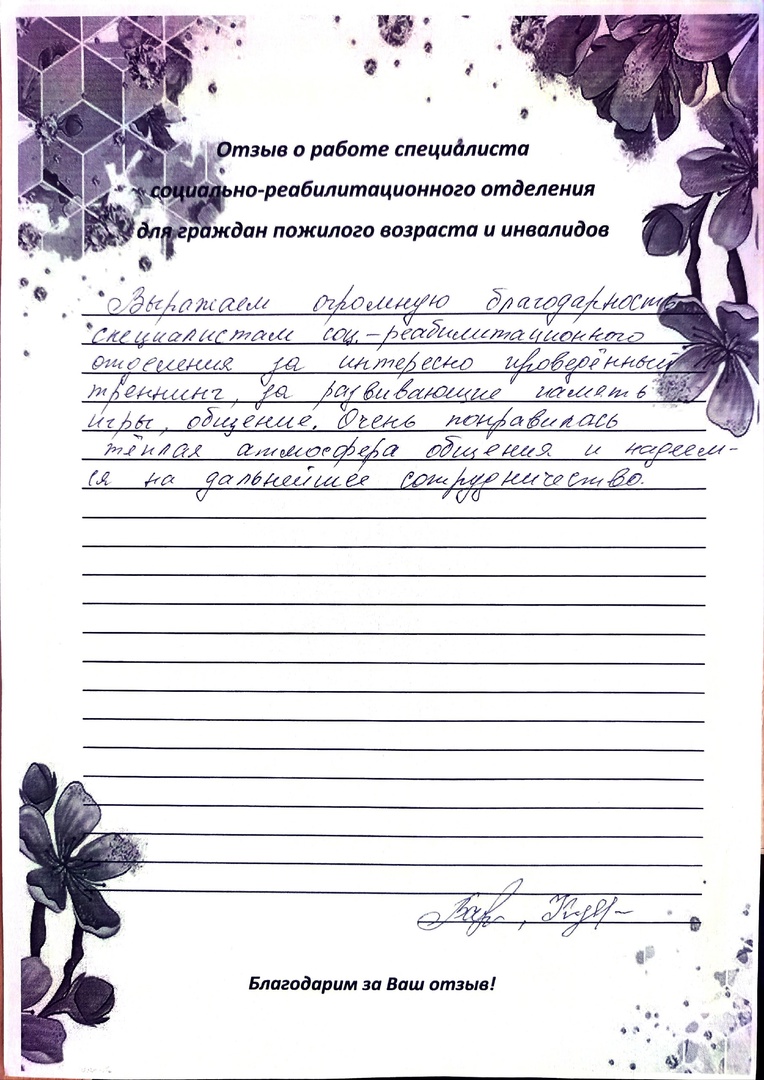 Отзыв о работе специалиста
социально-реабилитационного отделения
для граждан пожилого возраста и инвалидов
Выражаем огромную благодарность
специалистам соц.-реабилитационного
отделения за интересно проведённый
треннинг, за развивающие память
игры, общение. Очень понравилась
тёплая атмосфера общения и надеем-
ся на дальнейшее сотрудничество.
Благодарим за Ваш отзыв!